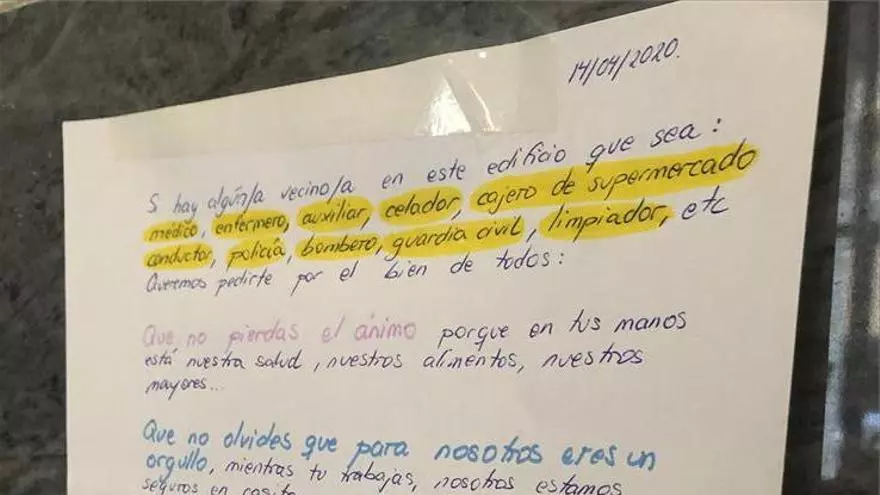 14/04/2020.
S hay algún/a vecino/a en este edificio que sea:
médico, enfermero, auxiliar, celador, cajero de supermercado
conductor, policía, bombero, guardia civil, limpiador, etc
Queremos pedirte por el bien de todos:
Que no pierdas el ánimo porque en tus manos
está nuestra salud, nuestros alimentos, nuestros
mayores...
Que no olvides que para nosotros eres un
orgullo, mientras tu trabajas, nosotros estamos
seguros en casita